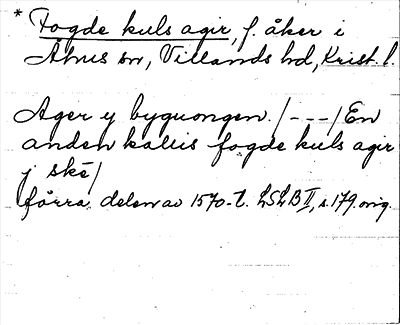 * Fogde kuls agir, f. åker i
Åhus sn, Villands hd, Krist. l.
Ager y byguongen. /---/ En
anden kallis fogde kuls agir
y skē/
förra delen av 1570-t. LSLB II, s. 179. orig.